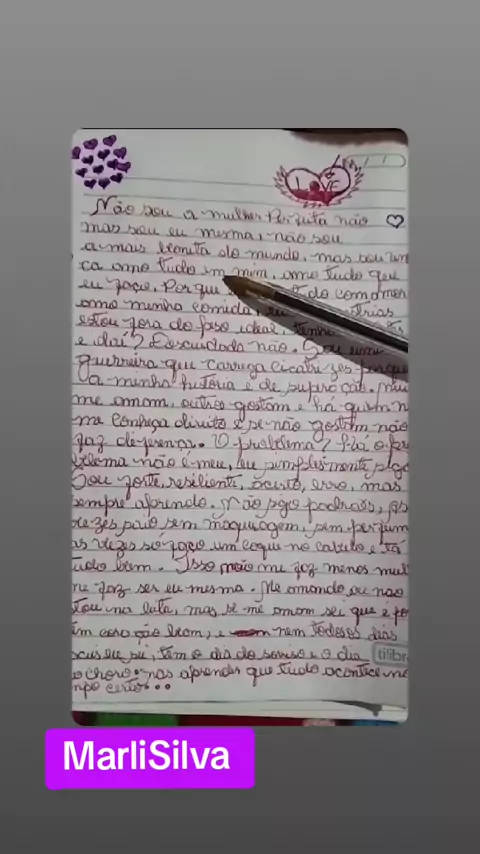 LOVE
Não sou a mulher Perfeita não
mas sou eu mesma, não sou
a mais bonita do mundo, mas sou
ca amo tudo em mim, amo tudo que
eu faço, Porque tudo com amor
amo minha comida, eu
estou fora do peso ideal, tenho
e daí? Descuidada não. Sou uma
guerreira que carrega cicatrizes porque
a minha história é de superação.
me amam, outros gostam e há quem n
me conheça direito e se não gostam não
faz diferença. O problema? Há o pro
blema não é meu, eu simplesmente sigo
Sou forte, resiliente, acerto, erro, mas
sempre aprendo. Não sigo padrões, as
vezes saio sem maquiagem, sem perfum
as vezes só faço um coque no cabelo e tá
tudo bem. Isso não me faz menos mul
me faz ser eu mesma. Me amando ou não
tou na luta, mas se me amam sei que é po
um coração bom, e nem todos os dias
eu sei, tem o dia do sorriso e o dia
tilibra
o choro. mas aprendi que tudo acontece no
mpo certo...
MarliSilva